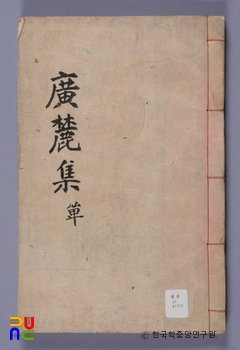 廣麓集 單
© 한국학중앙연구원